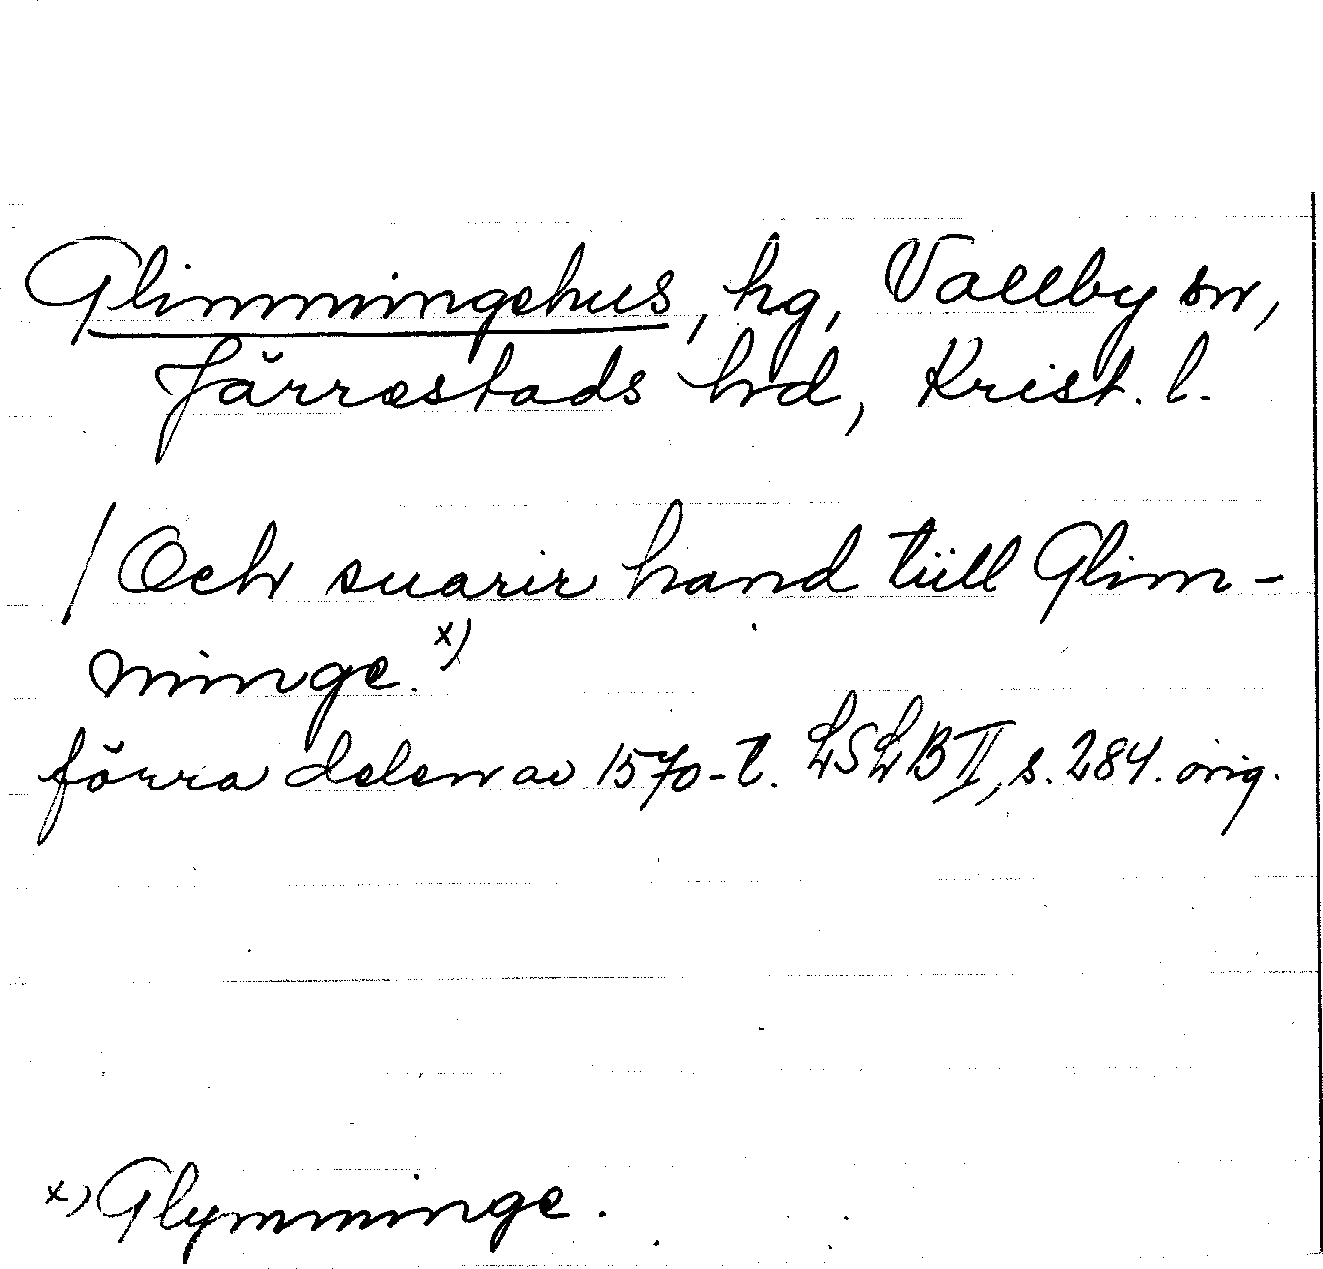 Glimmingehus, hg, Vallby sn,
Järrestads hd, Krist. l.
/ Och suarir hand tüll Glim-
minge. x)
förra delen av 1570-t. LSLB II, s. 284. orig.
x) Glymminge.